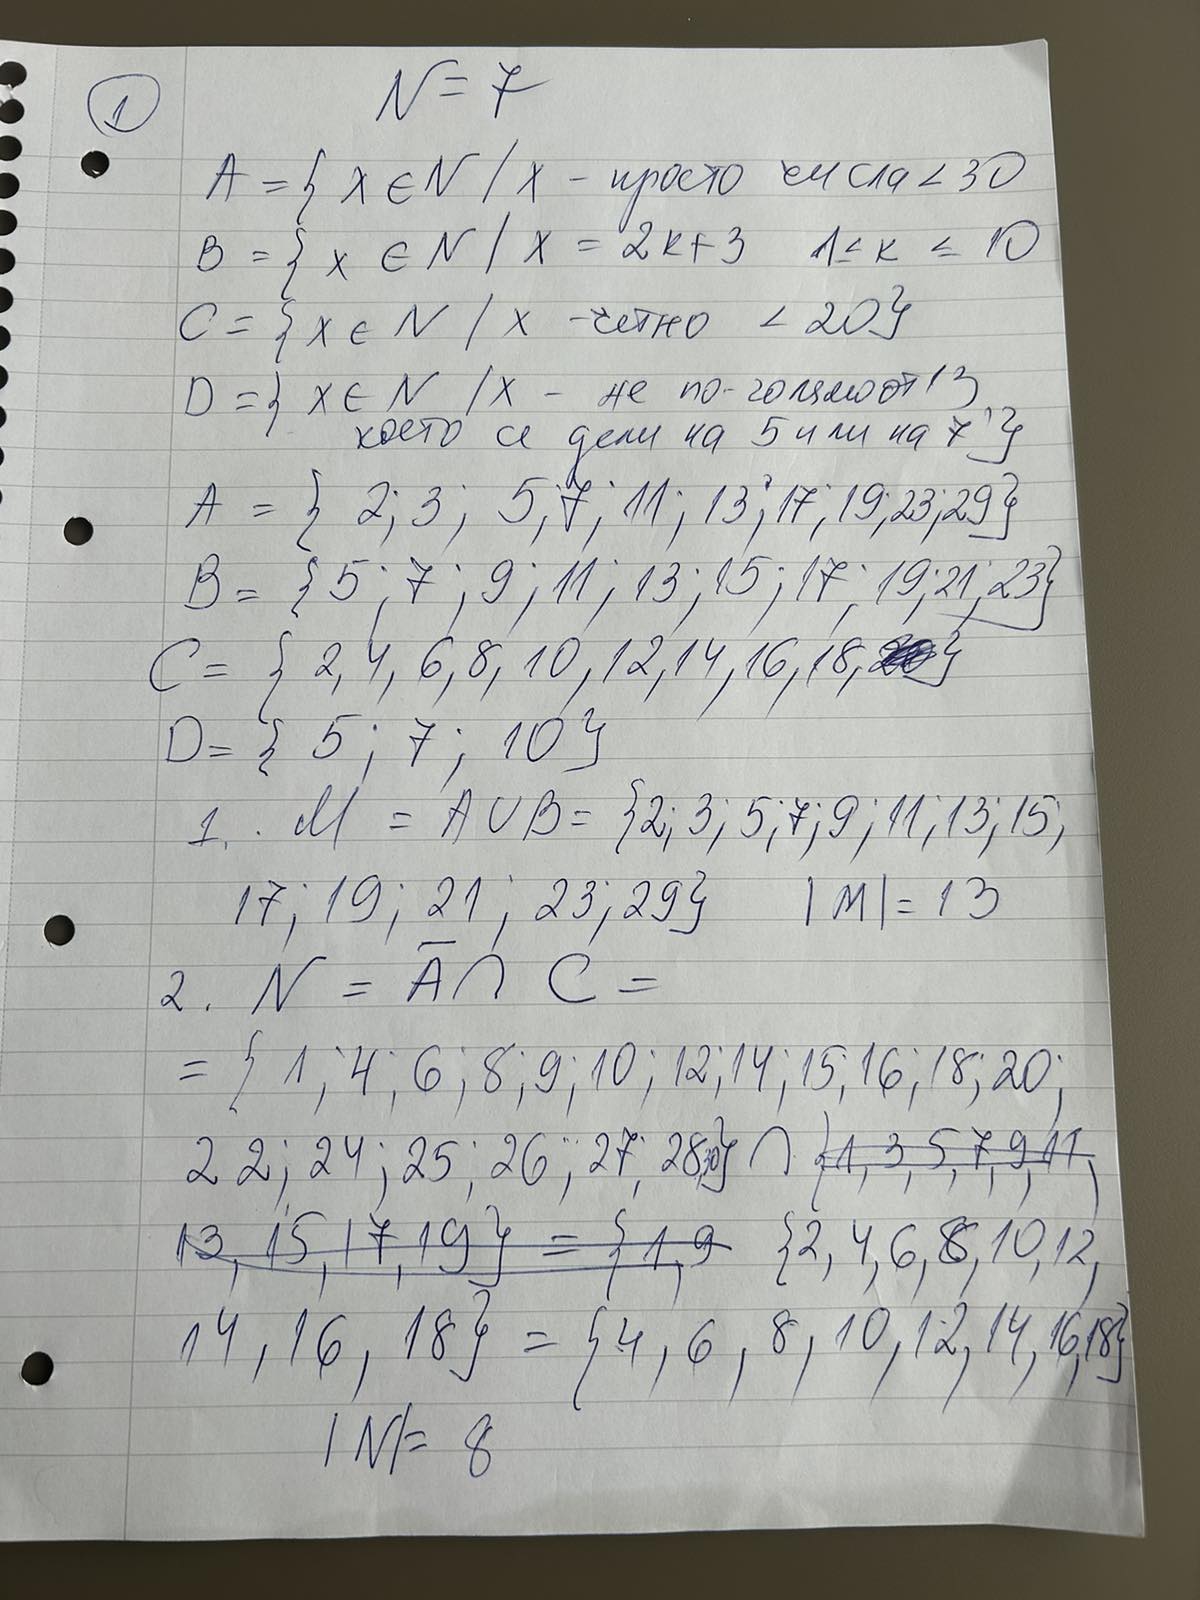 1
N = 7
A = { x ∈ N / x - просто числа < 30
B = { x ∈ N / x = 2k+3 1 ≤ k ≤ 10
C = { x ∈ N / x - четно < 20}
D = { x ∈ N / x - не по-голямо от 13,
което се дели на 5 или на 7}
A = { 2; 3; 5; 7; 11; 13; 17; 19; 23; 29}
B = {5; 7; 9; 11; 13; 15; 17; 19; 21; 23}
C = { 2, 4, 6, 8, 10, 12, 14, 16, 18, }
D = { 5; 7; 10}
1. M = A ∪ B = {2; 3; 5; 7; 9; 11; 13; 15;
17; 19; 21; 23; 29} |M| = 13
2. N = A̅ ∩ C =
= { 1; 4; 6; 8; 9; 10; 12; 14; 15, 16; 18; 20;
22; 24; 25; 26; 27; 28, 30} ∩ {1, 3, 5, 7, 9, 11,
13, 15, 17, 19} = {1, 9 {2, 4, 6, 8, 10, 12,
14, 16, 18} = {4, 6, 8, 10, 12, 14, 16, 18}
|N| = 8